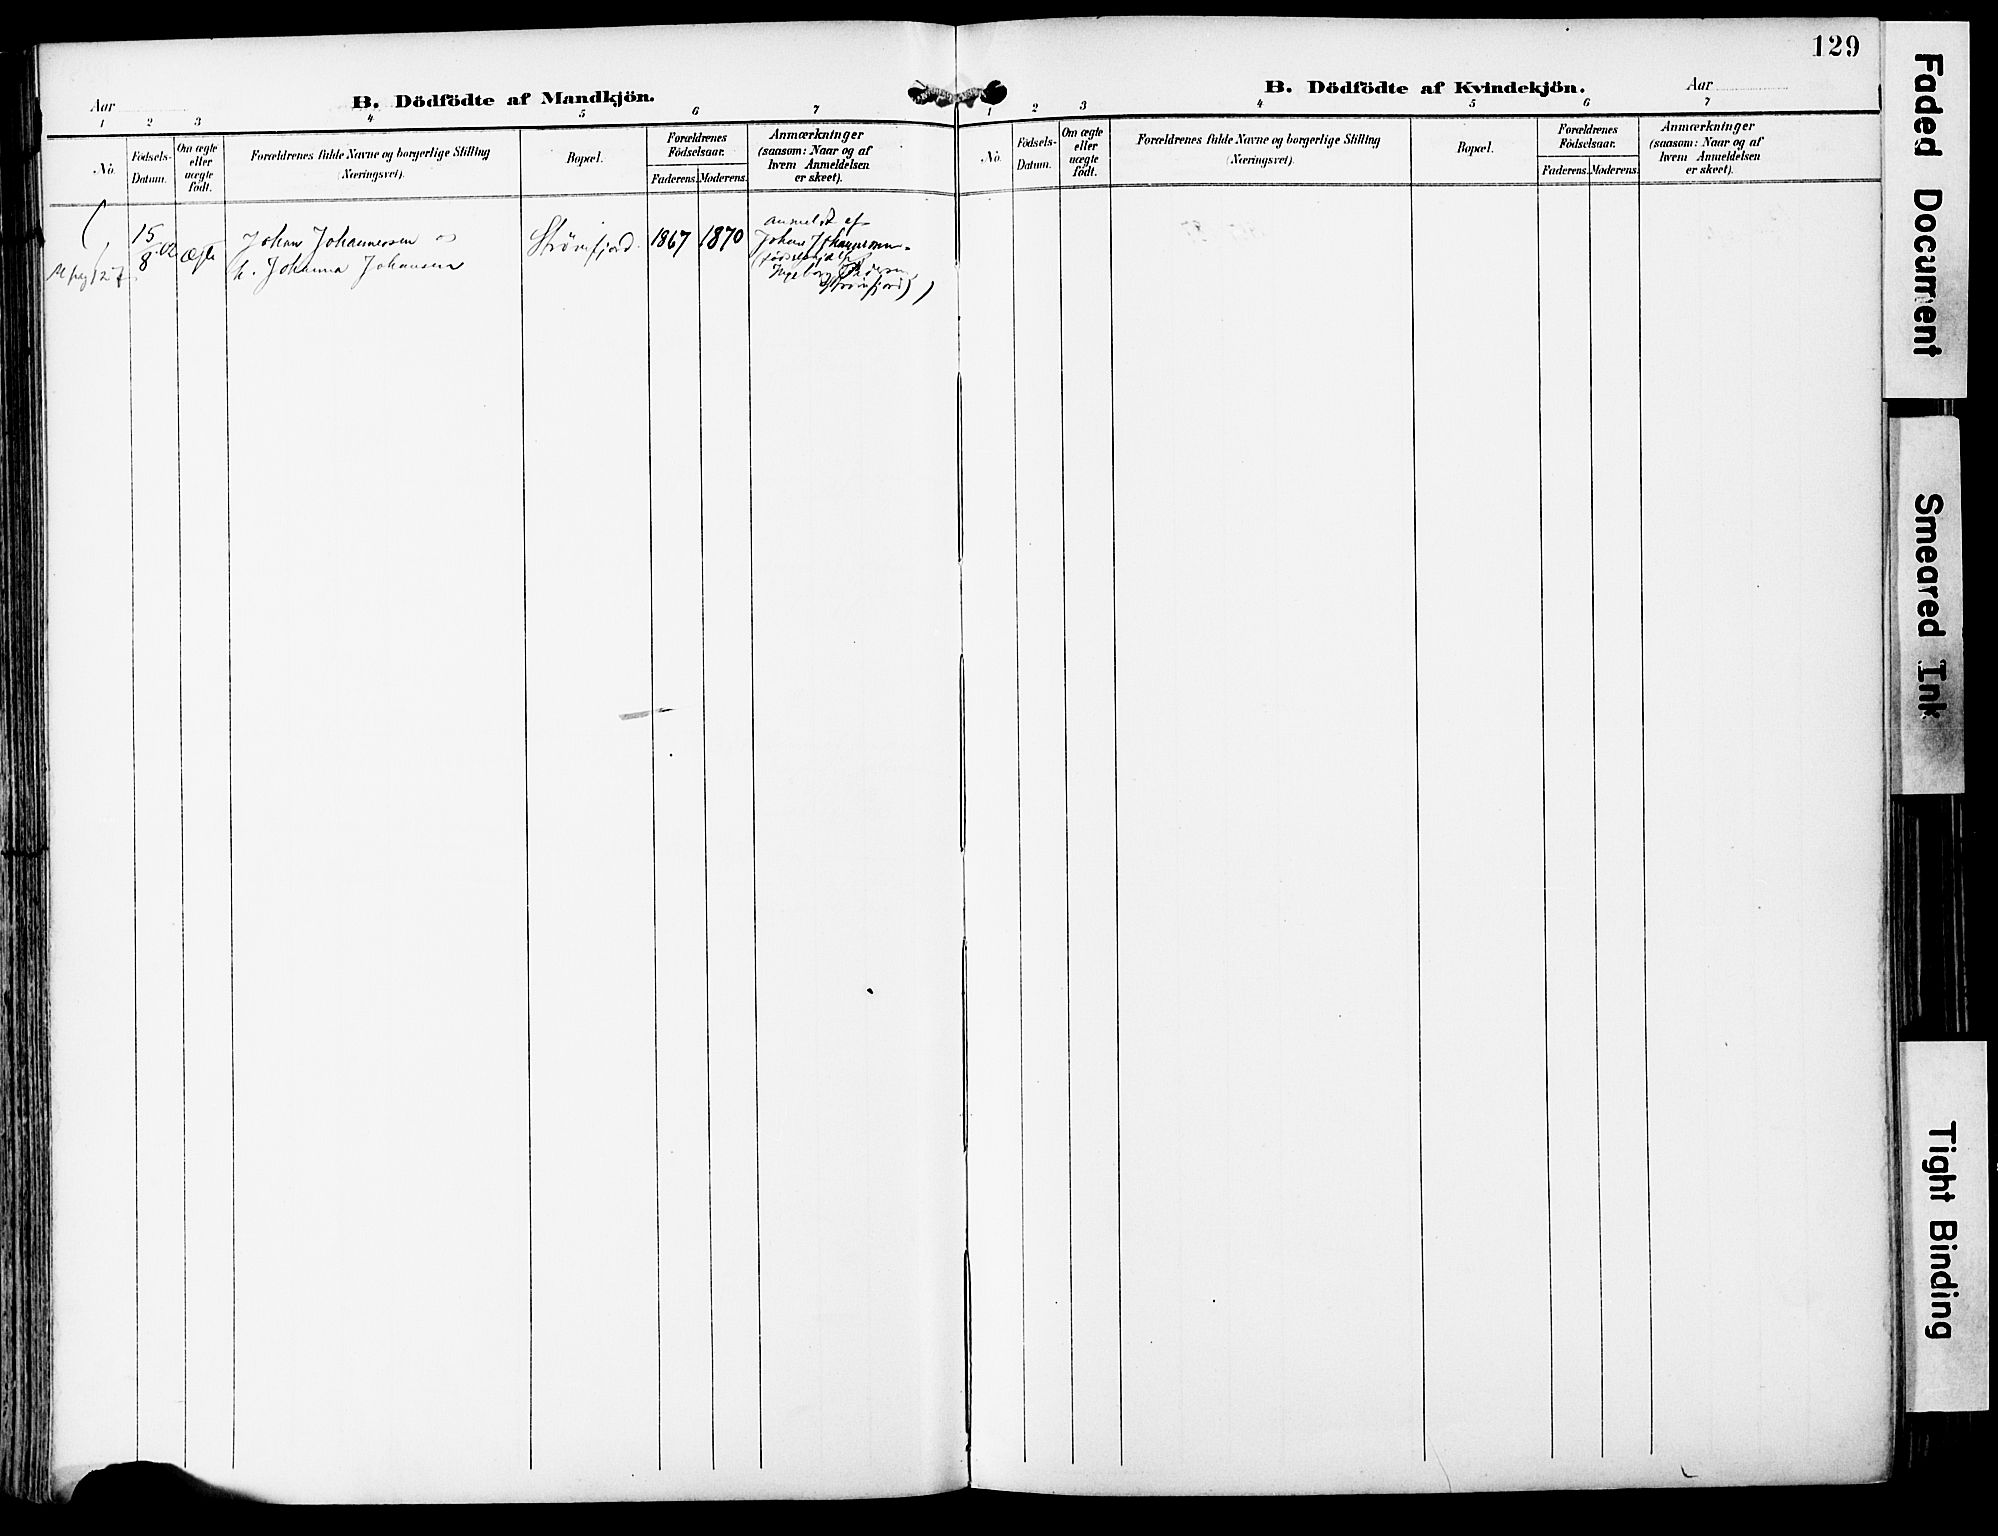 129
Aar
B. Dödfödte af Mandkjön.
1 2 3 4 5 6 7
No.
Födsels-
Datum.
Om ægte
eller
uægte
født.
Forældrenes fulde Navne og borgerlige Stilling
(Næringsvei).
Bopæl.
Forældrenes
Födselsaar.
Faderens. Moderens.
Anmærkninger
(saasom: Naar og af
hvem Anmeldelsen
er skeet).
15
8 02
Ægte
Johan Johannessen og
h. Johanna Johansen
Strømfjord
1867
1870
anmeldt af
Johan Johannessen
Ingeborg Pedersen
Strømfjord)
127
B. Dödfödte af Kvindekjön.
Aar
1 2 3 4 5 6 7
No.
Födsels-
Datum.
Om ægte
eller
uægte
født.
Forældrenes fulde Navne og borgerlige Stilling
(Næringsvei).
Bopæl.
Forældrenes
Födselsaar.
Faderens. Moderens.
Anmærkninger
(saasom: Naar og af
hvem Anmeldelsen
er skeet).
Faded Document
Smeared Ink
Tight Binding